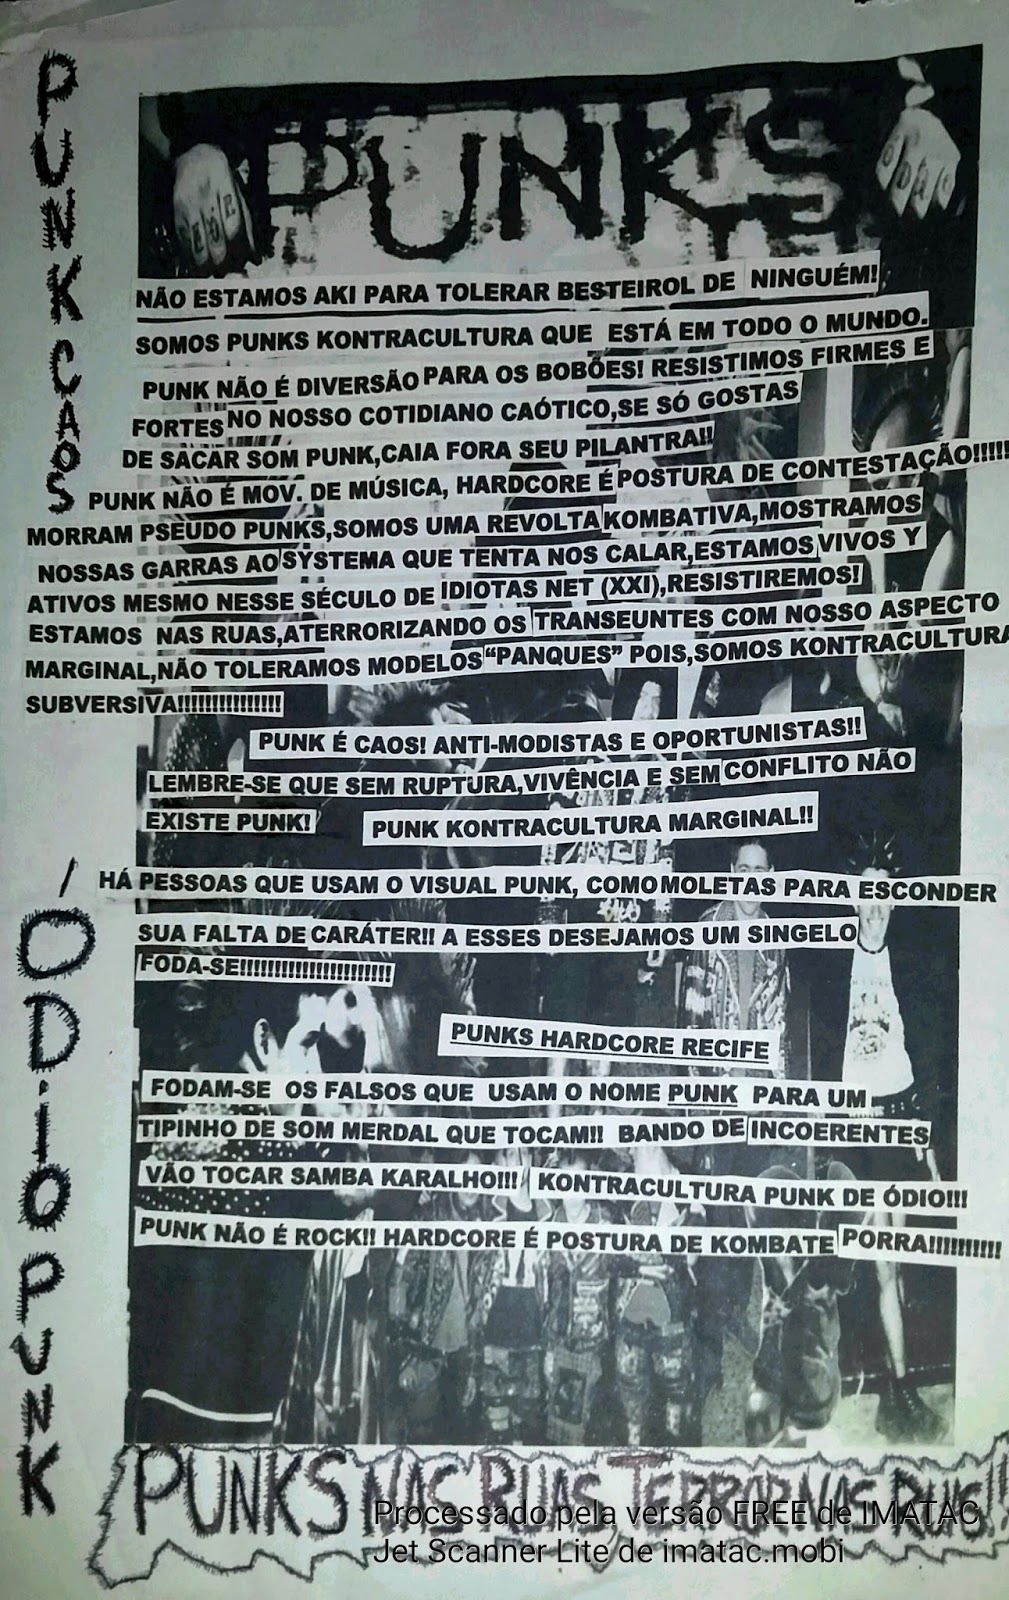 PUNK CAOS
/ODIO PUNK
PUNKS
ÓDIO
NÃO ESTAMOS AKI PARA TOLERAR BESTEIROL DE NINGUÉM!
SOMOS PUNKS KONTRACULTURA QUE ESTÁ EM TODO O MUNDO.
PUNK NÃO É DIVERSÃO PARA OS BOBÕES! RESISTIMOS FIRMES E
FORTES NO NOSSO COTIDIANO CAÓTICO,SE SÓ GOSTAS
DE SACAR SOM PUNK,CAIA FORA SEU PILANTRA!!
PUNK NÃO É MOV. DE MÚSICA, HARDCORE É POSTURA DE CONTESTAÇÃO!!!!!
MORRAM PSEUDO PUNKS,SOMOS UMA REVOLTA KOMBATIVA,MOSTRAMOS
NOSSAS GARRAS AO SYSTEMA QUE TENTA NOS CALAR,ESTAMOS VIVOS Y
ATIVOS MESMO NESSE SÉCULO DE IDIOTAS NET (XXI),RESISTIREMOS!
ESTAMOS NAS RUAS,ATERRORIZANDO OS TRANSEUNTES COM NOSSO ASPECTO
MARGINAL,NÃO TOLERAMOS MODELOS "PANQUES" POIS,SOMOS KONTRACULTURA
SUBVERSIVA!!!!!!!!!!!!!!!
PUNK É CAOS! ANTI-MODISTAS E OPORTUNISTAS!!
LEMBRE-SE QUE SEM RUPTURA,VIVÊNCIA E SEM CONFLITO NÃO
EXISTE PUNK! PUNK KONTRACULTURA MARGINAL!!
HÁ PESSOAS QUE USAM O VISUAL PUNK, COMO MOLETAS PARA ESCONDER
SUA FALTA DE CARÁTER!! A ESSES DESEJAMOS UM SINGELO
FODA-SE!!!!!!!!!!!!!!!!!!!!!!
PUNKS HARDCORE RECIFE
FODAM-SE OS FALSOS QUE USAM O NOME PUNK PARA UM
TIPINHO DE SOM MERDAL QUE TOCAM!! BANDO DE INCOERENTES
VÃO TOCAR SAMBA KARALHO!!! KONTRACULTURA PUNK DE ÓDIO!!!
PUNK NÃO É ROCK!! HARDCORE É POSTURA DE KOMBATE PORRA!!!!!!!!!!
PUNKS NAS RUAS, TERROR NAS RUAS!!
Processado pela versão FREE de IMATAC
Jet Scanner Lite de imatac.mobi